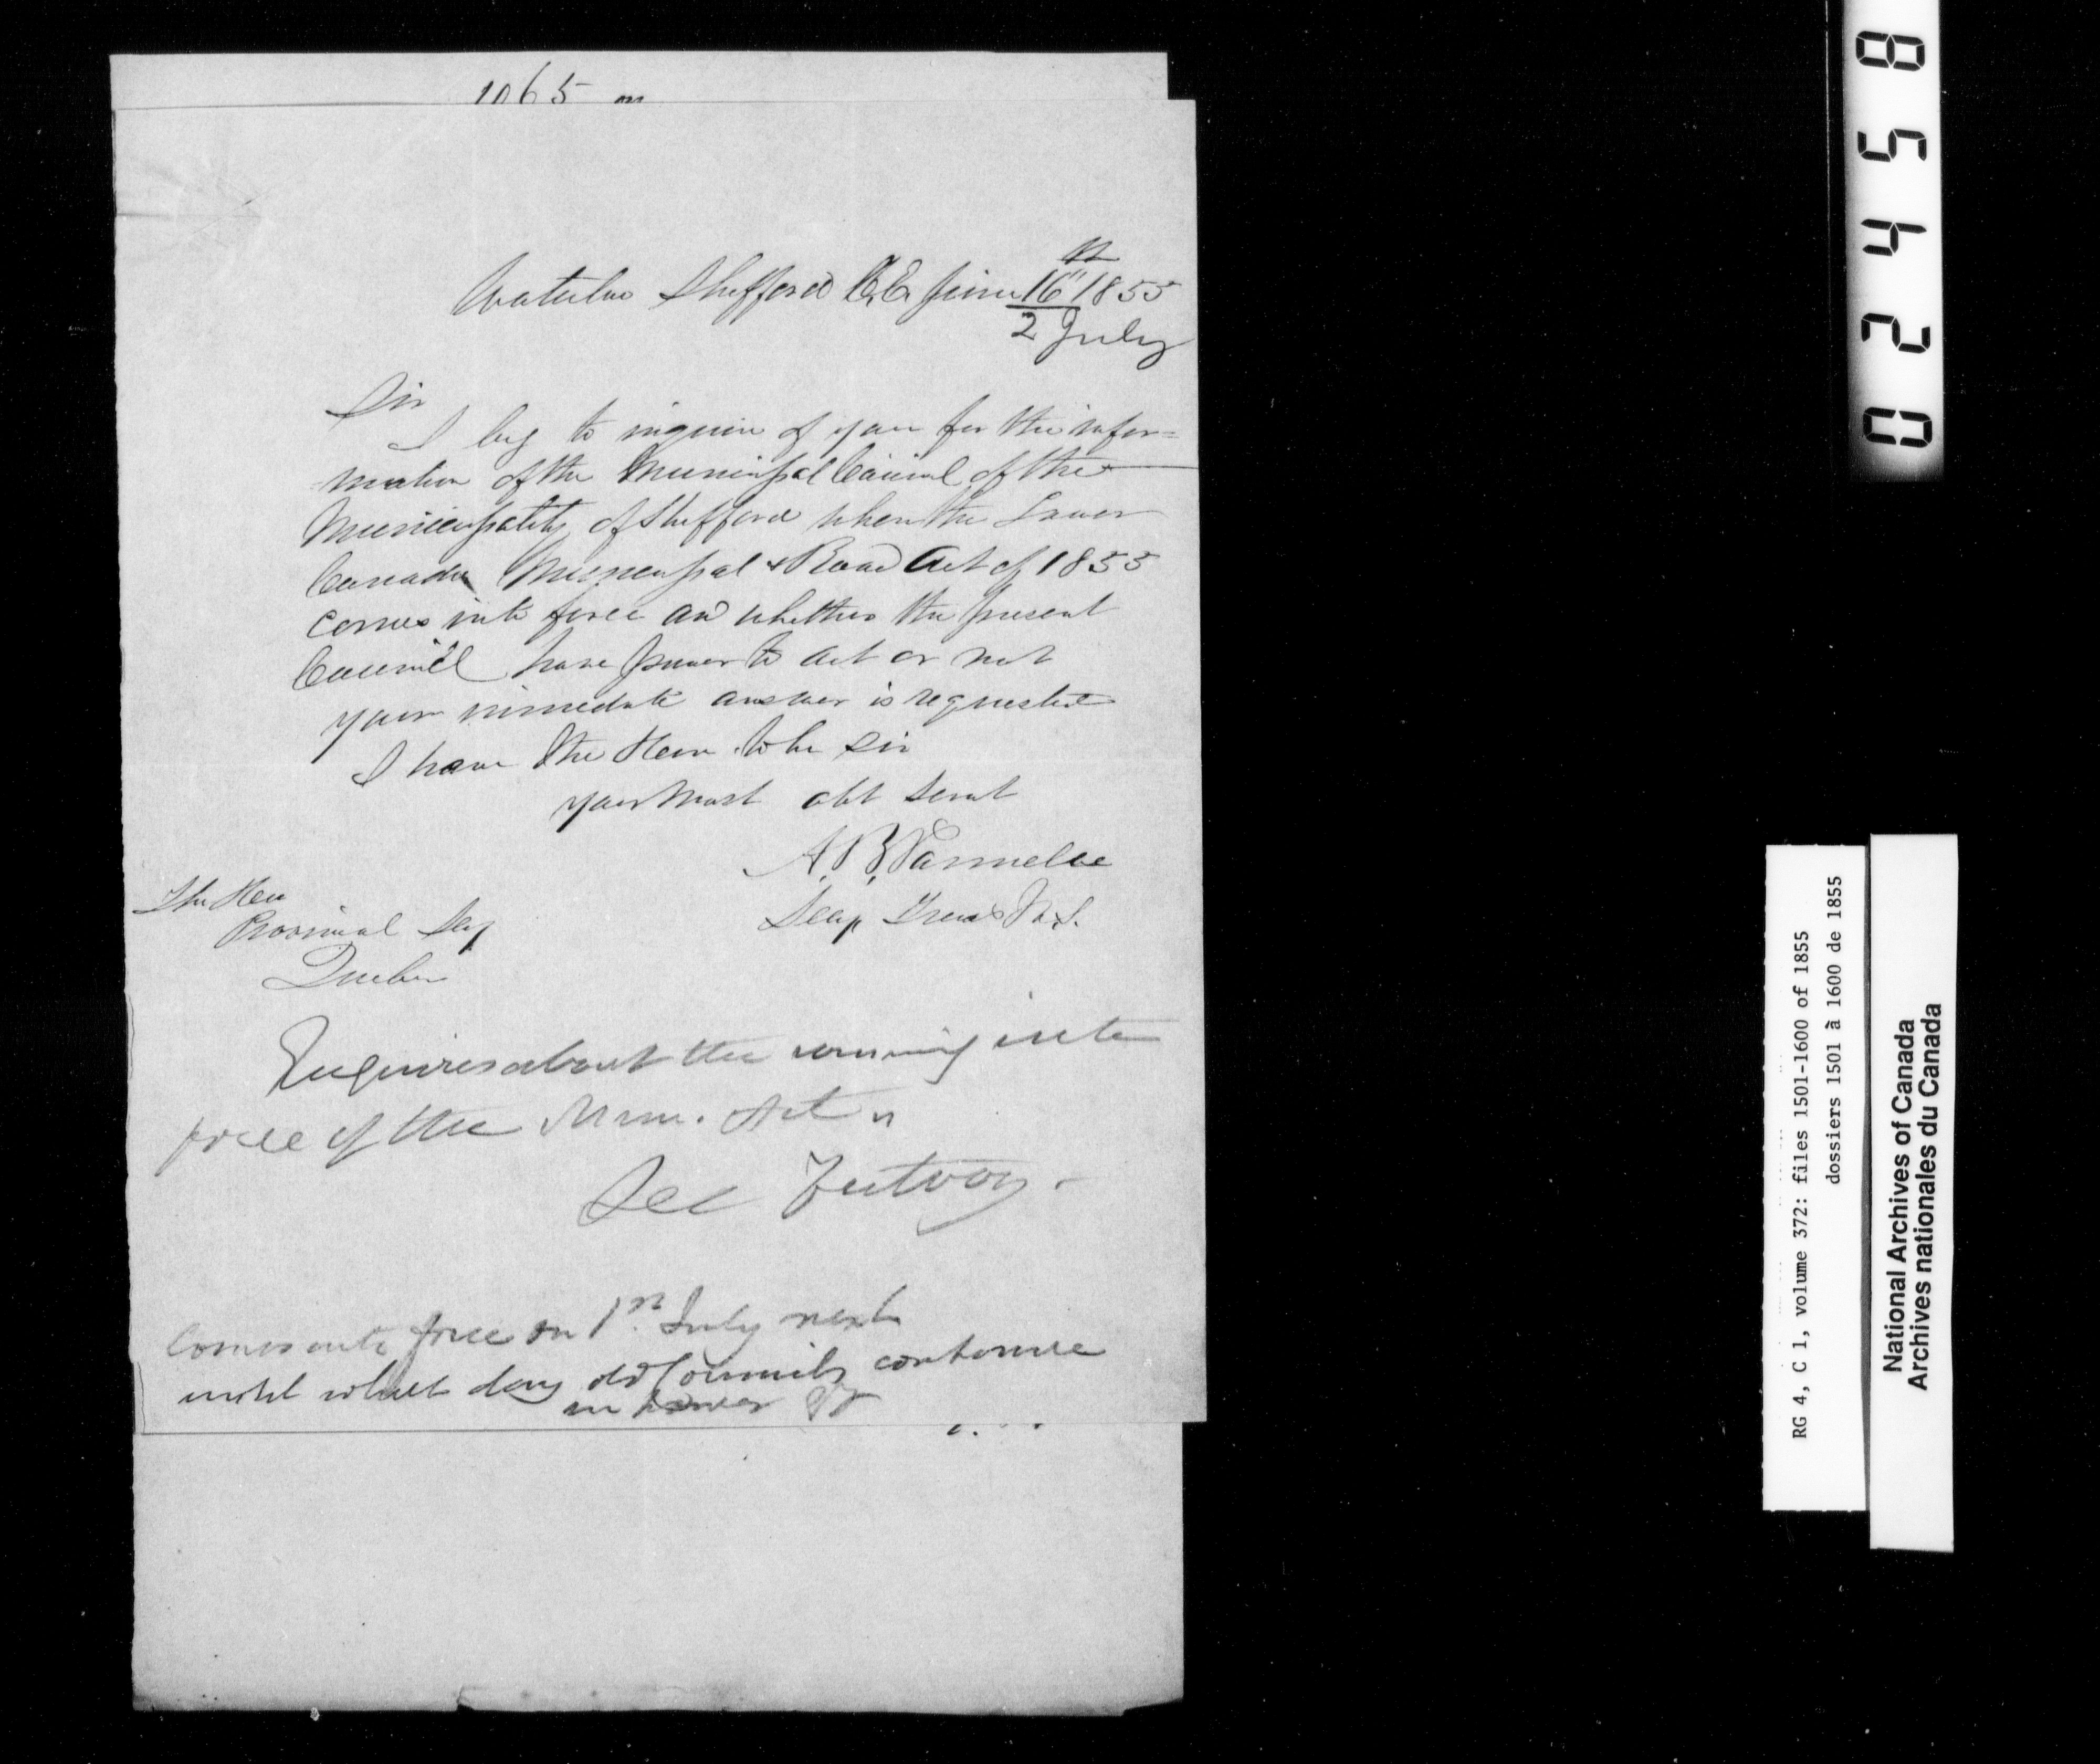 1065
Waterloo Shefford C.E. June 16" 1855
2 July
Sir
I beg to inquire of you for the infor=
mation of the Municipal Council of the
Municipality of Shefford when the Lower
Canada Municipal & Road Act of 1855
comes into force and whether the present
Council have power to act or not
your immediate answer is requested
I have the Hon. to be Sir
your most obt Servt
A. B. Parmelee
Secy Treas M. S.
The Hon
Provincial Secy
Quebec
Enquires about the coming into
force of the Mun. Act
See
Comes into force on 1st July next
until what day old Councils continue
in power
02458
RG 4, C 1, volume 372: files 1501-1600 of 1855
dossiers 1501 à 1600 de 1855
National Archives of Canada
Archives nationales du Canada